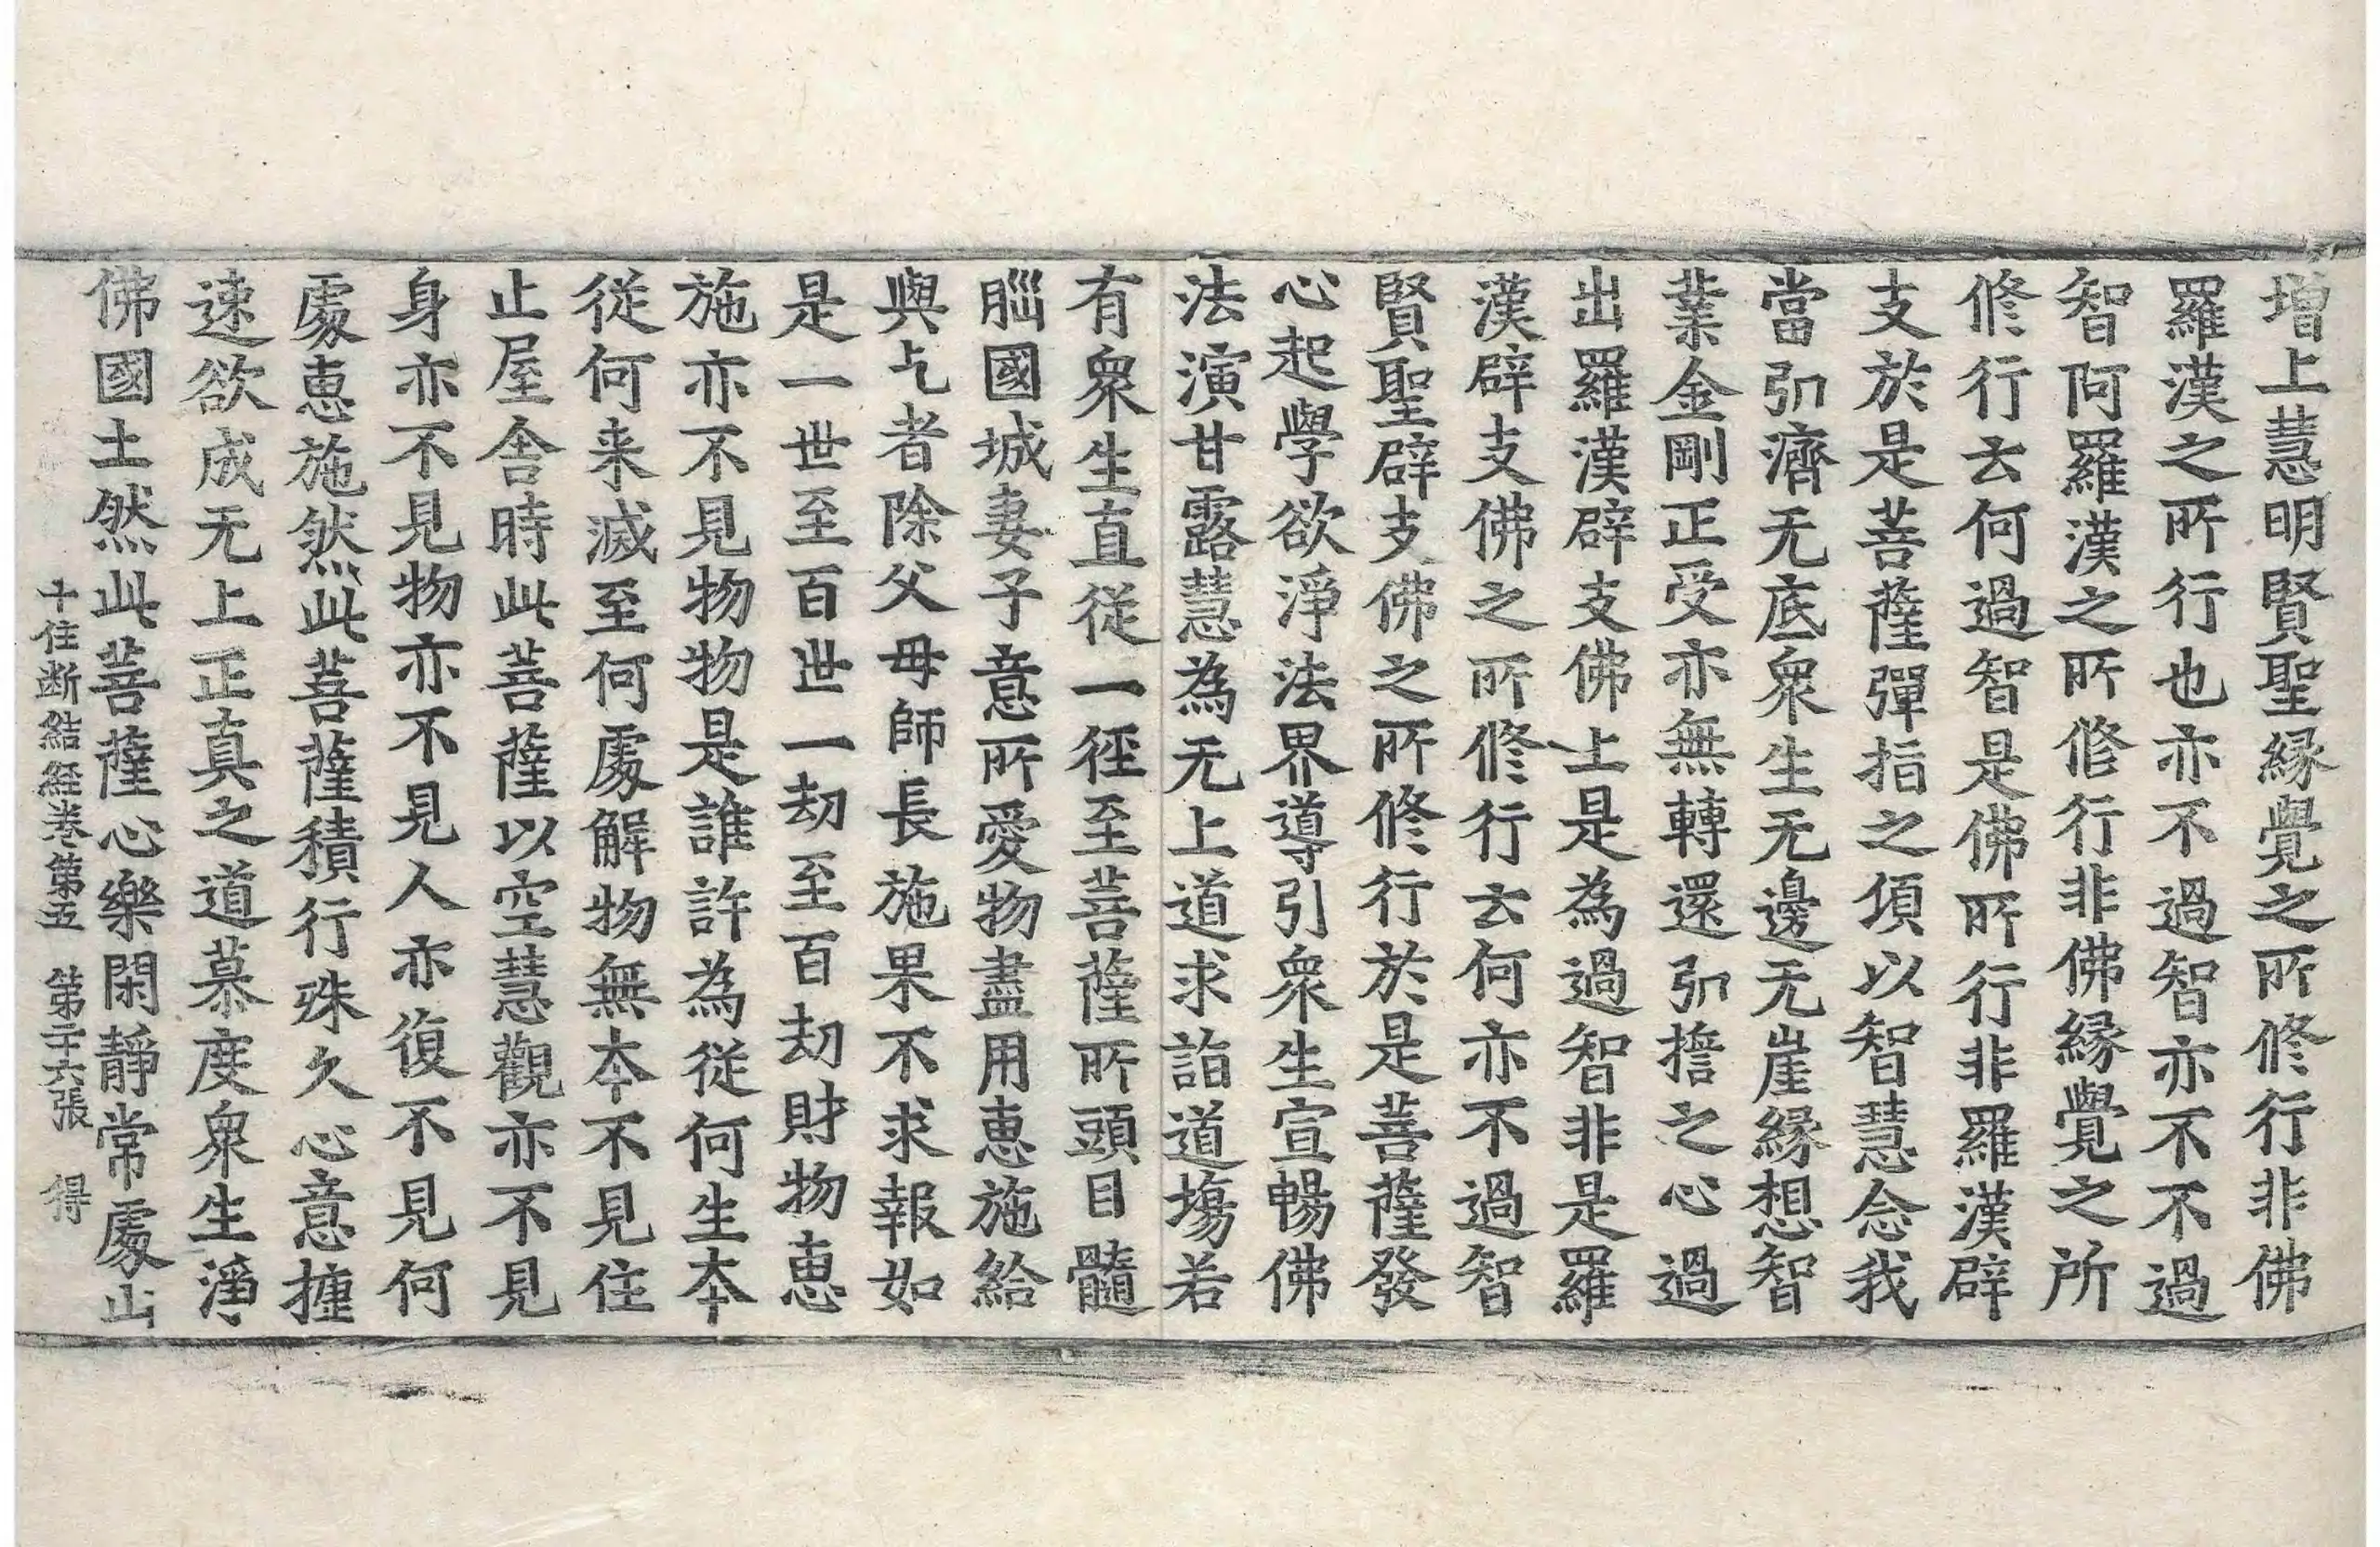 增上慧明賢聖縁覺之所修行非佛
羅漢之所行也亦不過智亦不不過
智阿羅漢之所修行非佛縁覺之所
修行云何過智是佛所行非羅漢辟
支於是菩薩彈指之頃以智慧念我
當引濟无底衆生无邊无崖縁想智
業金剛正受亦無轉還引擔之心過
出羅漢辟支佛上是為過智非是羅
漢辟支佛之所修行云何亦不過智
賢聖辟支佛之所修行於是菩薩發
心起學欲淨法界導引衆生宣暢佛
法演甘露慧為无上道求詣道塲若
有衆生直從一徑至菩薩所頭目髓
腦國城妻子意所愛物盡用惠施給
與乞者除父母師長施果不求報如
是一世至百世一劫至百劫財物惠
施亦不見物物是誰許為從何生本
從何来滅至何處解物無本不見住
止屋舍時此菩薩以空慧觀亦不見
身亦不見物亦不見人亦復不見何
處惠施然此菩薩積行殊久心意摧
速欲成无上正真之道慕度衆生淨
佛國土然此菩薩心樂閑靜常處山
十住断結経卷第五　第二十六張　得